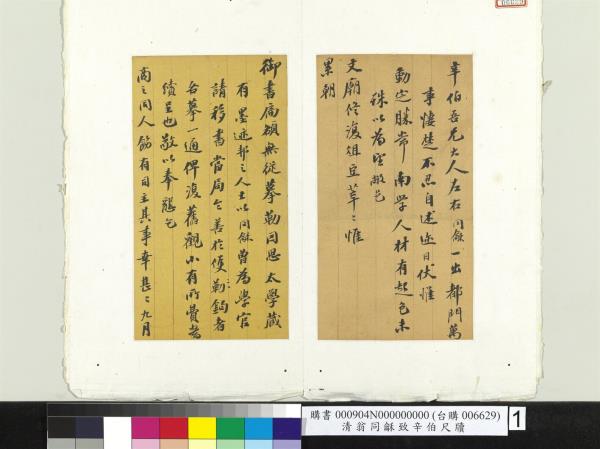 辛伯吾兄大人左右同龢一出都門萬
事悽楚不忍自述近日伏惟
動定勝常南學人材有起色未
殊以為念敝邑
文廟修復俎豆莘莘惟
累朝
御書扁額無從摹勒同思太學藏
有墨迹邦之人士以同龢曾為學官
請移書當局令善於使勒鉤者
各摹一通俾復舊觀小有所費者
續呈也敬以奉懇乞
商之同人飭有司主其事幸甚幸甚九月
購書 000904N000000000 (台購 006629)
清翁同龢致辛伯尺牘
1